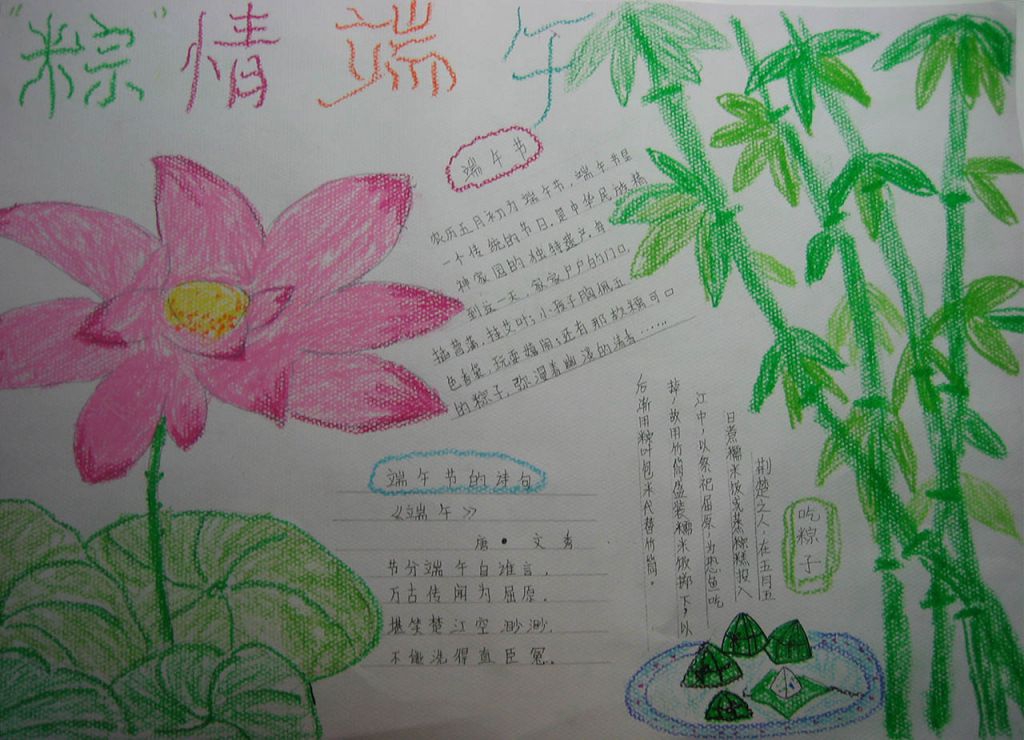 “粽”情端午
端午节
农历五月初为端午节,端午节是
一个传统的节日,是中华民族精
神家园的独特遗产,每
到这一天,家家户户的门口
插菖蒲,挂艾叶;小孩子胸佩五
色香囊,玩耍嬉闹;还有那软糯可口
的粽子,弥漫着幽凌的清香……
端午节的诗句
《端午》
唐·文秀
节分端午自谁言,
万古传闻为屈原。
堪笑楚江空渺渺,
不能洗得直臣冤。
吃粽子
荆楚之人,在五月五
日煮糯米饭或蒸粽糕投入
江中,以祭祀屈原,为恐鱼吃
掉,故用竹筒盛装糯米饭掷下,以
后渐用粽叶包米代替竹筒。